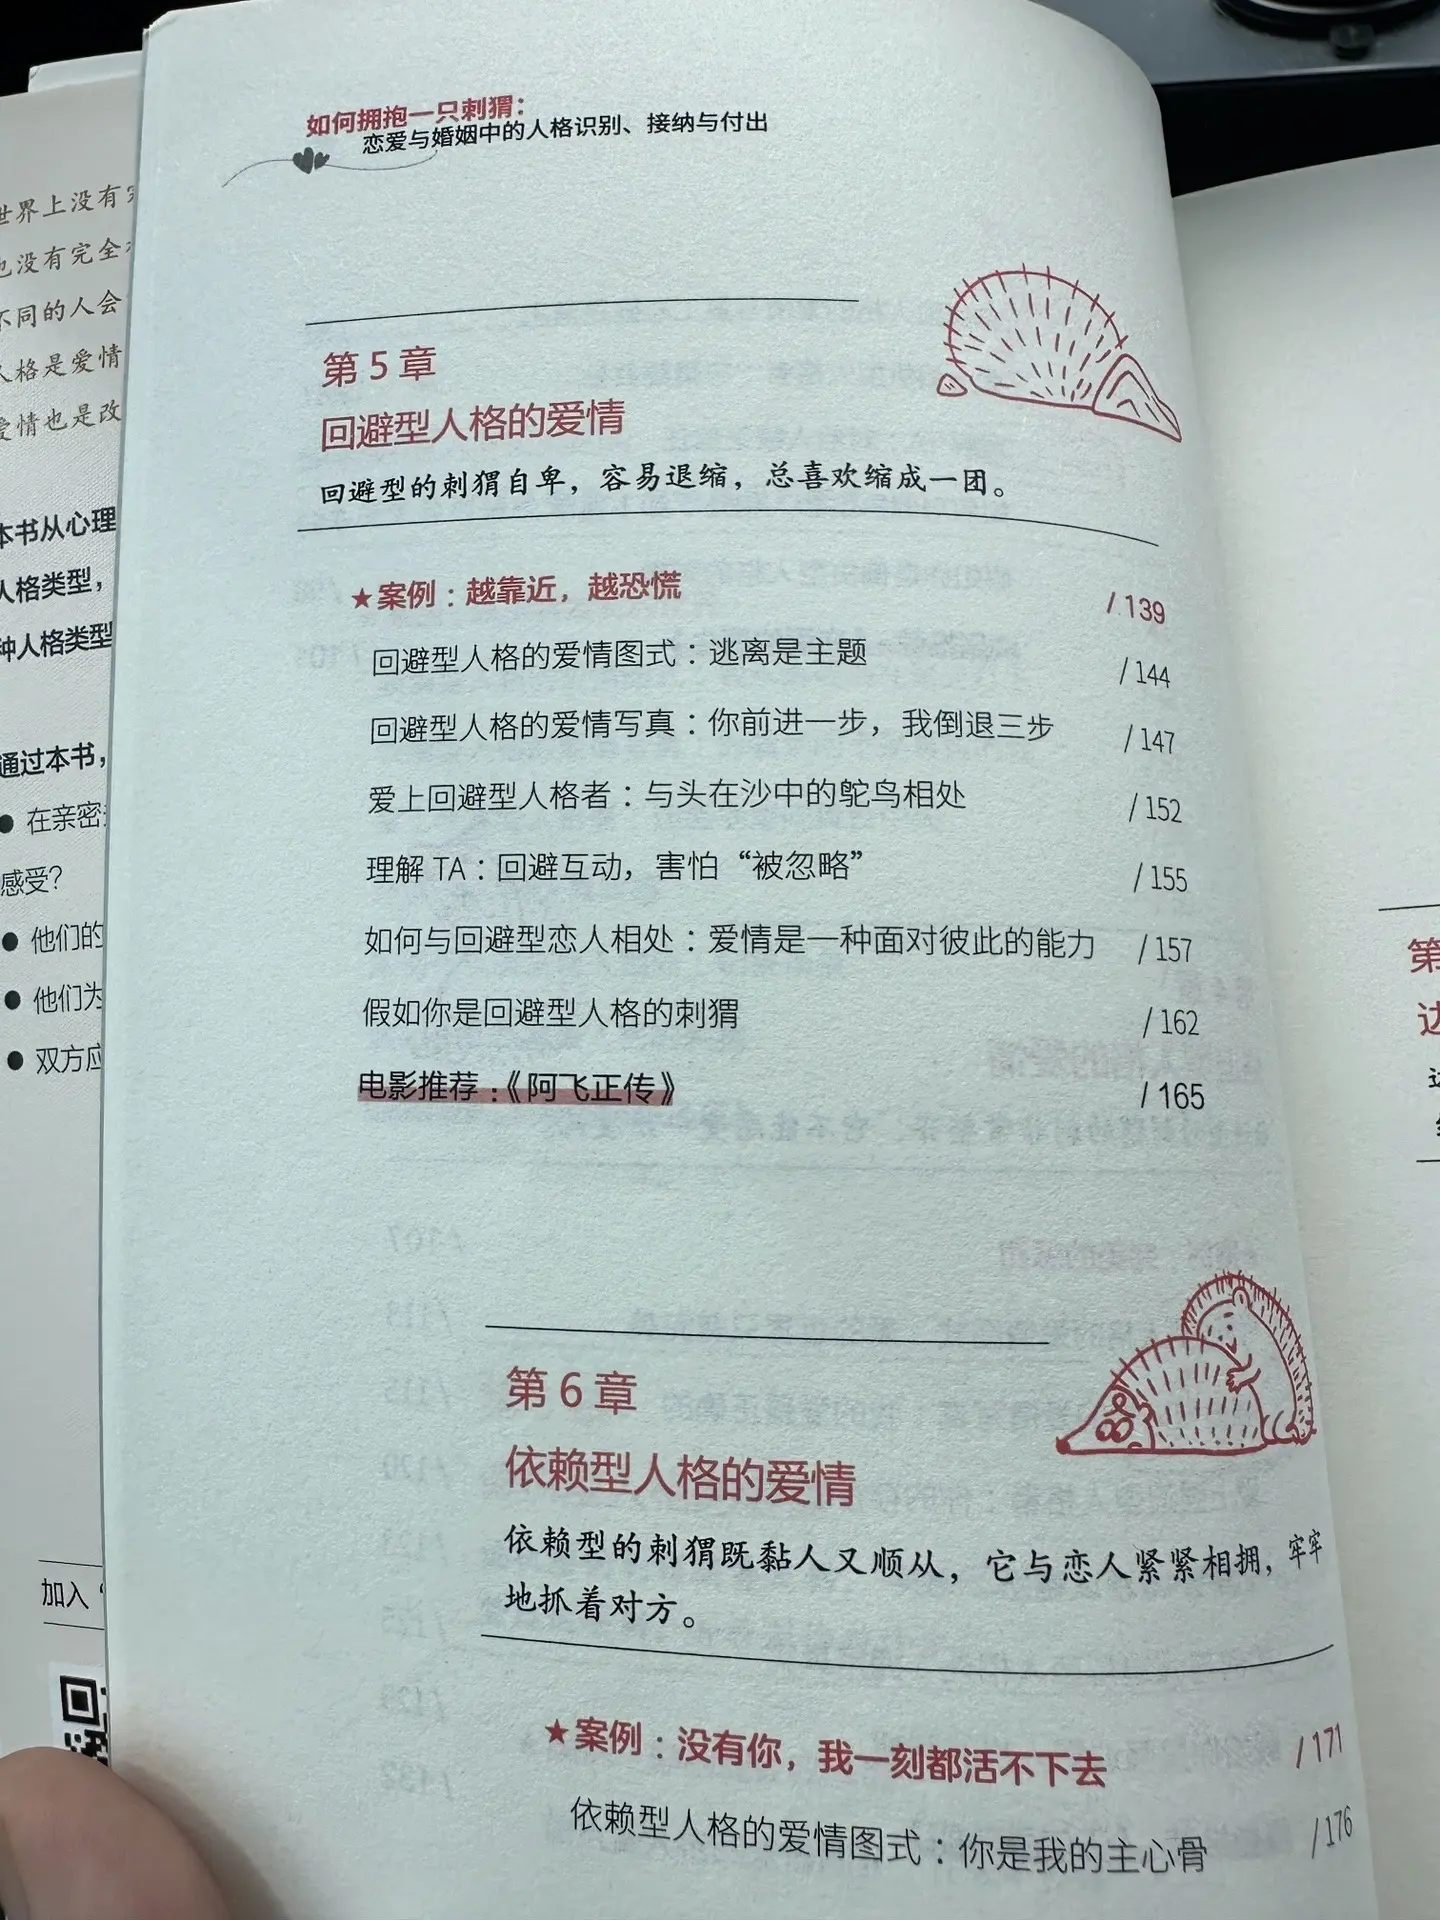 如何拥抱一只刺猬：
恋爱与婚姻中的人格识别、接纳与付出
第 5 章
回避型人格的爱情
回避型的刺猬自卑，容易退缩，总喜欢缩成一团。
★案例：越靠近，越恐慌 / 139
回避型人格的爱情图式：逃离是主题 / 144
回避型人格的爱情写真：你前进一步，我倒退三步 / 147
爱上回避型人格者：与头在沙中的鸵鸟相处 / 152
理解 TA：回避互动，害怕“被忽略” / 155
如何与回避型恋人相处：爱情是一种面对彼此的能力 / 157
假如你是回避型人格的刺猬 / 162
电影推荐：《阿飞正传》 / 165
第 6 章
依赖型人格的爱情
依赖型的刺猬既黏人又顺从，它与恋人紧紧相拥，牢牢
地抓着对方。
★案例：没有你，我一刻都活不下去 / 171
依赖型人格的爱情图式：你是我的主心骨 / 176
世界上没有
也没有完全
不同的人会
人格是爱情
爱情也是改
本书从心理
人格类型，
种人格类型
通过本书，
● 在亲密
感受？
● 他们的
● 他们为
● 双方应
加入“
第